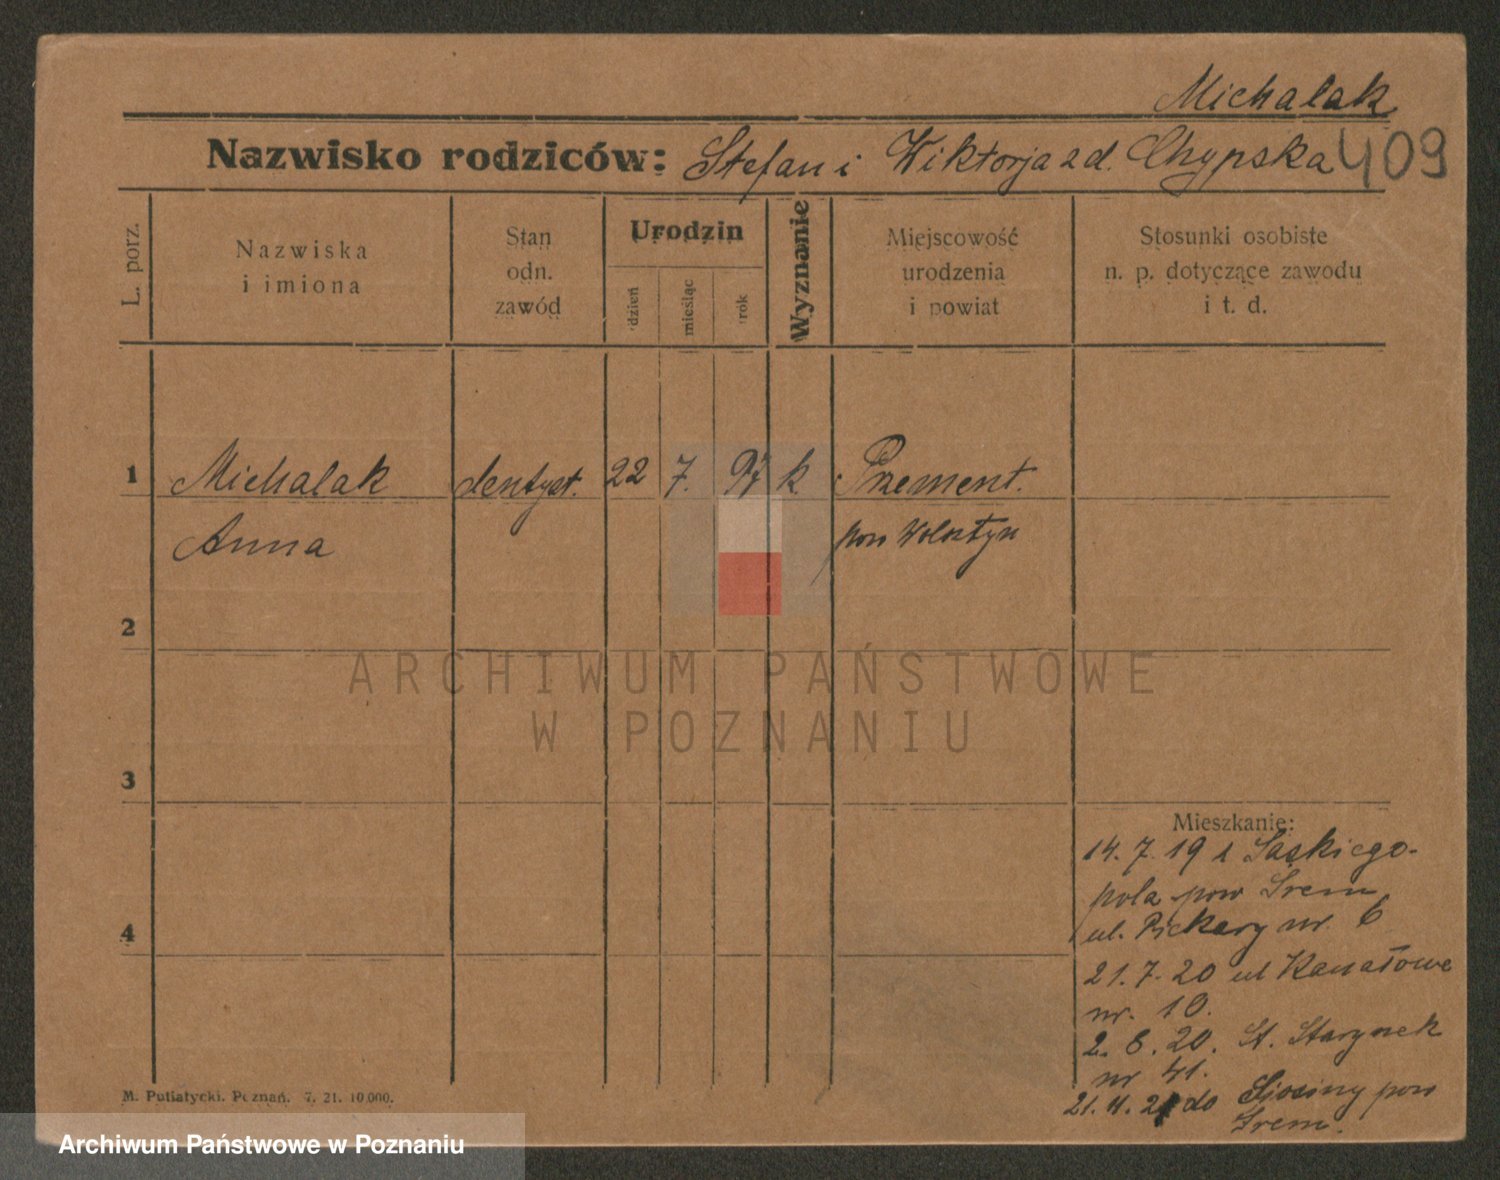 Michalak
Nazwisko rodziców: Stefan i Wiktorja z d. Chypska 409
L. porz.
Nazwiska
i imiona
Stan
odn.
zawód
Urodzin
dzień
miesiąc
rok
Wyznanie
Miejscowość
urodzenia
i powiat
Stosunki osobiste
n. p. dotyczące zawodu
i t. d.
1 Michalak dentyst. 22 7. 97 k. Przement.
Anna pow Wolsztyn
2
ARCHIWUM PAŃSTWOWE
W POZNANIU
3
Mieszkanie:
14. 7. 19 z Saskiego-
pola pow Srem
ul. Piekary nr. 6
4
21. 7. 20 ul Kanałowe
nr. 10.
2. 8. 20. St. Starynek
nr 41.
21. 4. 21 do pow
Srem.
M. Putiatycki. Poznań. 7. 21. 10.000.
Archiwum Państwowe w Poznaniu